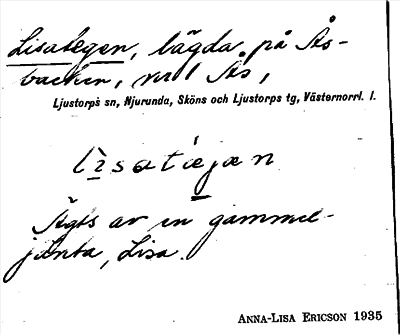 Lisategen, lägda på Ås-
backen, nr 1 Ås,
Ljustorps sn, Njurunda, Sköns och Ljustorps tg, Västernorrl. l.
lìsatæ̀jæn
Ägts av en gammel-
jänta, Lisa.
ANNA-LISA ERICSON 1935